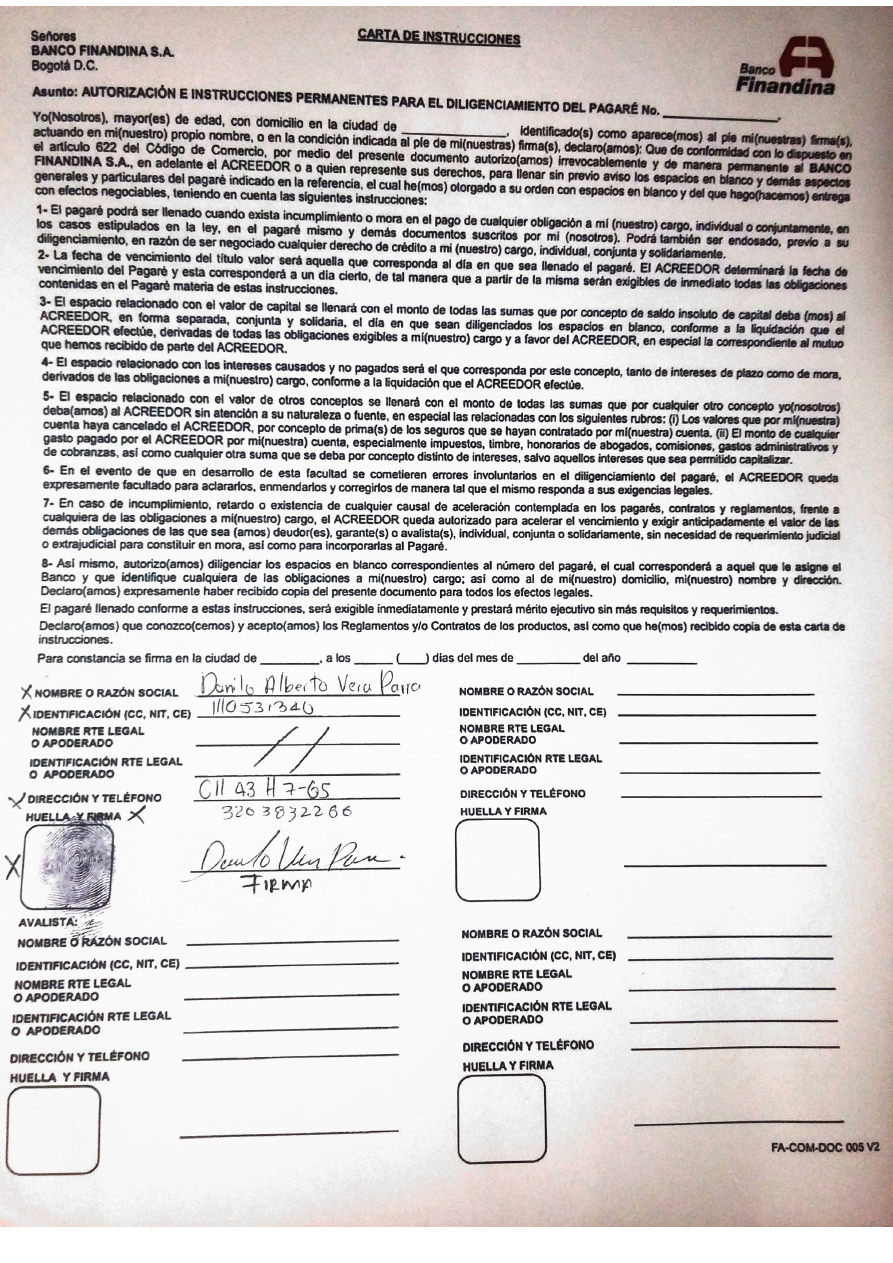 Señores
BANCO FINANDINA S.A.
Bogotá D.C.
CARTA DE INSTRUCCIONES
Banco
Finandina
Asunto: AUTORIZACIÓN E INSTRUCCIONES PERMANENTES PARA EL DILIGENCIAMIENTO DEL PAGARÉ No. ____________,
Yo(Nosotros), mayor(es) de edad, con domicilio en la ciudad de ____________, identificado(s) como aparece(mos) al pie mi(nuestras) firma(s),
actuando en mi(nuestro) propio nombre, o en la condición indicada al pie de mi(nuestras) firma(s), declaro(amos): Que de conformidad con lo dispuesto en
el artículo 622 del Código de Comercio, por medio del presente documento autorizo(amos) irrevocablemente y de manera permanente al BANCO
FINANDINA S.A., en adelante el ACREEDOR o a quien represente sus derechos, para llenar sin previo aviso los espacios en blanco y demás aspectos
generales y particulares del pagaré indicado en la referencia, el cual he(mos) otorgado a su orden con espacios en blanco y del que hago(hacemos) entrega
con efectos negociables, teniendo en cuenta las siguientes instrucciones:
1- El pagaré podrá ser llenado cuando exista incumplimiento o mora en el pago de cualquier obligación a mí (nuestro) cargo, individual o conjuntamente, en
los casos estipulados en la ley, en el pagaré mismo y demás documentos suscritos por mi (nosotros). Podrá también ser endosado, previo a su
diligenciamiento, en razón de ser negociado cualquier derecho de crédito a mi (nuestro) cargo, individual, conjunta y solidariamente.
2- La fecha de vencimiento del título valor será aquella que corresponda al día en que sea llenado el pagaré. El ACREEDOR determinará la fecha de
vencimiento del Pagaré y esta corresponderá a un día cierto, de tal manera que a partir de la misma serán exigibles de inmediato todas las obligaciones
contenidas en el Pagaré materia de estas instrucciones.
3- El espacio relacionado con el valor de capital se llenará con el monto de todas las sumas que por concepto de saldo insoluto de capital deba (mos) al
ACREEDOR, en forma separada, conjunta y solidaria, el día en que sean diligenciados los espacios en blanco, conforme a la liquidación que el
ACREEDOR efectúe, derivadas de todas las obligaciones exigibles a mi(nuestro) cargo y a favor del ACREEDOR, en especial la correspondiente al mutuo
que hemos recibido de parte del ACREEDOR.
4- El espacio relacionado con los intereses causados y no pagados será el que corresponda por este concepto, tanto de intereses de plazo como de mora,
derivados de las obligaciones a mi(nuestro) cargo, conforme a la liquidación que el ACREEDOR efectúe.
5- El espacio relacionado con el valor de otros conceptos se llenará con el monto de todas las sumas que por cualquier otro concepto yo(nosotros)
deba(amos) al ACREEDOR sin atención a su naturaleza o fuente, en especial las relacionadas con los siguientes rubros: (i) Los valores que por mi(nuestra)
cuenta haya cancelado el ACREEDOR, por concepto de prima(s) de los seguros que se hayan contratado por mi(nuestra) cuenta. (ii) El monto de cualquier
gasto pagado por el ACREEDOR por mi(nuestra) cuenta, especialmente impuestos, timbre, honorarios de abogados, comisiones, gastos administrativos y
de cobranzas, así como cualquier otra suma que se deba por concepto distinto de intereses, salvo aquellos intereses que sea permitido capitalizar.
6- En el evento de que en desarrollo de esta facultad se cometieren errores involuntarios en el diligenciamiento del pagaré, el ACREEDOR queda
expresamente facultado para aclararlos, enmendarlos y corregirlos de manera tal que el mismo responda a sus exigencias legales.
7- En caso de incumplimiento, retardo o existencia de cualquier causal de aceleración contemplada en los pagarés, contratos y reglamentos, frente a
cualquiera de las obligaciones a mi(nuestro) cargo, el ACREEDOR queda autorizado para acelerar el vencimiento y exigir anticipadamente el valor de las
demás obligaciones de las que sea (amos) deudor(es), garante(s) o avalista(s), individual, conjunta o solidariamente, sin necesidad de requerimiento judicial
o extrajudicial para constituir en mora, así como para incorporarlas al Pagaré.
8- Así mismo, autorizo(amos) diligenciar los espacios en blanco correspondientes al número del pagaré, el cual corresponderá a aquel que le asigne el
Banco y que identifique cualquiera de las obligaciones a mi(nuestro) cargo; así como al de mi(nuestro) domicilio, mi(nuestro) nombre y dirección.
Declaro(amos) expresamente haber recibido copia del presente documento para todos los efectos legales.
El pagaré llenado conforme a estas instrucciones, será exigible inmediatamente y prestará mérito ejecutivo sin más requisitos y requerimientos.
Declaro(amos) que conozco(cemos) y acepto(amos) los Reglamentos y/o Contratos de los productos, así como que he(mos) recibido copia de esta carta de
instrucciones.
Para constancia se firma en la ciudad de _________, a los ______ (____) días del mes de __________ del año __________
X NOMBRE O RAZÓN SOCIAL Danilo Alberto Vera Parra
X IDENTIFICACIÓN (CC, NIT, CE) 1110531340
NOMBRE RTE LEGAL
O APODERADO
IDENTIFICACIÓN RTE LEGAL
O APODERADO
X DIRECCIÓN Y TELÉFONO Cll 43 H 7-65
3203832266
HUELLA Y FIRMA X
X
Danilo Vera Parra
FIRMA
NOMBRE O RAZÓN SOCIAL
IDENTIFICACIÓN (CC, NIT, CE)
NOMBRE RTE LEGAL
O APODERADO
IDENTIFICACIÓN RTE LEGAL
O APODERADO
DIRECCIÓN Y TELÉFONO
HUELLA Y FIRMA
AVALISTA:
NOMBRE O RAZÓN SOCIAL
IDENTIFICACIÓN (CC, NIT, CE)
NOMBRE RTE LEGAL
O APODERADO
IDENTIFICACIÓN RTE LEGAL
O APODERADO
DIRECCIÓN Y TELÉFONO
HUELLA Y FIRMA
NOMBRE O RAZÓN SOCIAL
IDENTIFICACIÓN (CC, NIT, CE)
NOMBRE RTE LEGAL
O APODERADO
IDENTIFICACIÓN RTE LEGAL
O APODERADO
DIRECCIÓN Y TELÉFONO
HUELLA Y FIRMA
FA-COM-DOC 005 V2